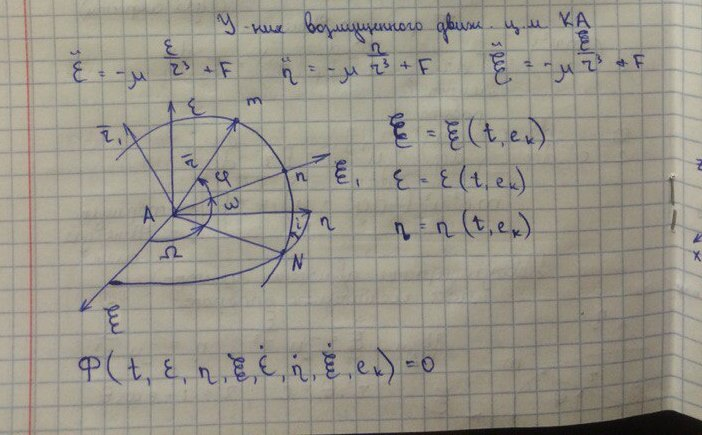 У-ния возмущенного движ. ц.м КА
ε̈ = -μ ε/r³ + F   η̈ = -μ η/r³ + F   ξ̈ = -μ ξ/r³ + F
ε m
r̄₁ r̄ φ n ξ₁
A ω η
Ω i N
ξ
ξ = ξ(t, eₖ)
ε = ε(t, eₖ)
η = η(t, eₖ)
Φ(t, ε, η, ξ, ε̇, η̇, ξ̇, eₖ) = 0
z
x